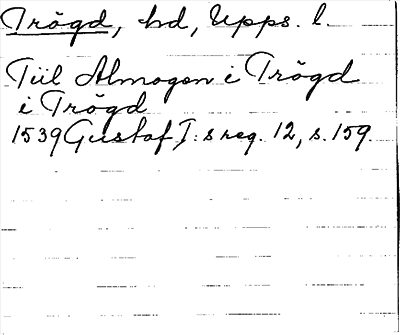 Trögd, hd, Upps. l.
Tiil Almogen i Trögd
i Trögd
1539 Gustaf I:s reg. 12, s. 159.